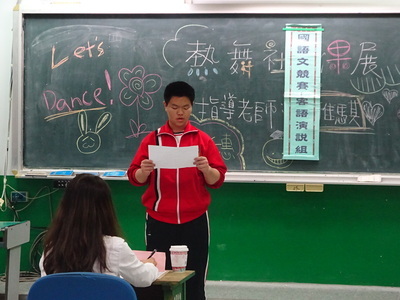 Let's
Dance!
熱舞社 果展
國語文競賽 客語演說組
指導老師
佳騏